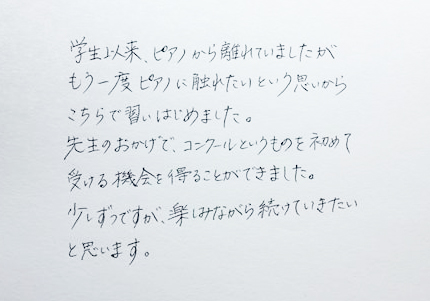 学生以来、ピアノから離れていましたが
もう一度ピアノに触れたいという思いから
こちらで習いはじめました。
先生のおかげで、コンクールというものを初めて
受ける機会を得ることができました。
少しずつですが、楽しみながら続けていきたい
と思います。